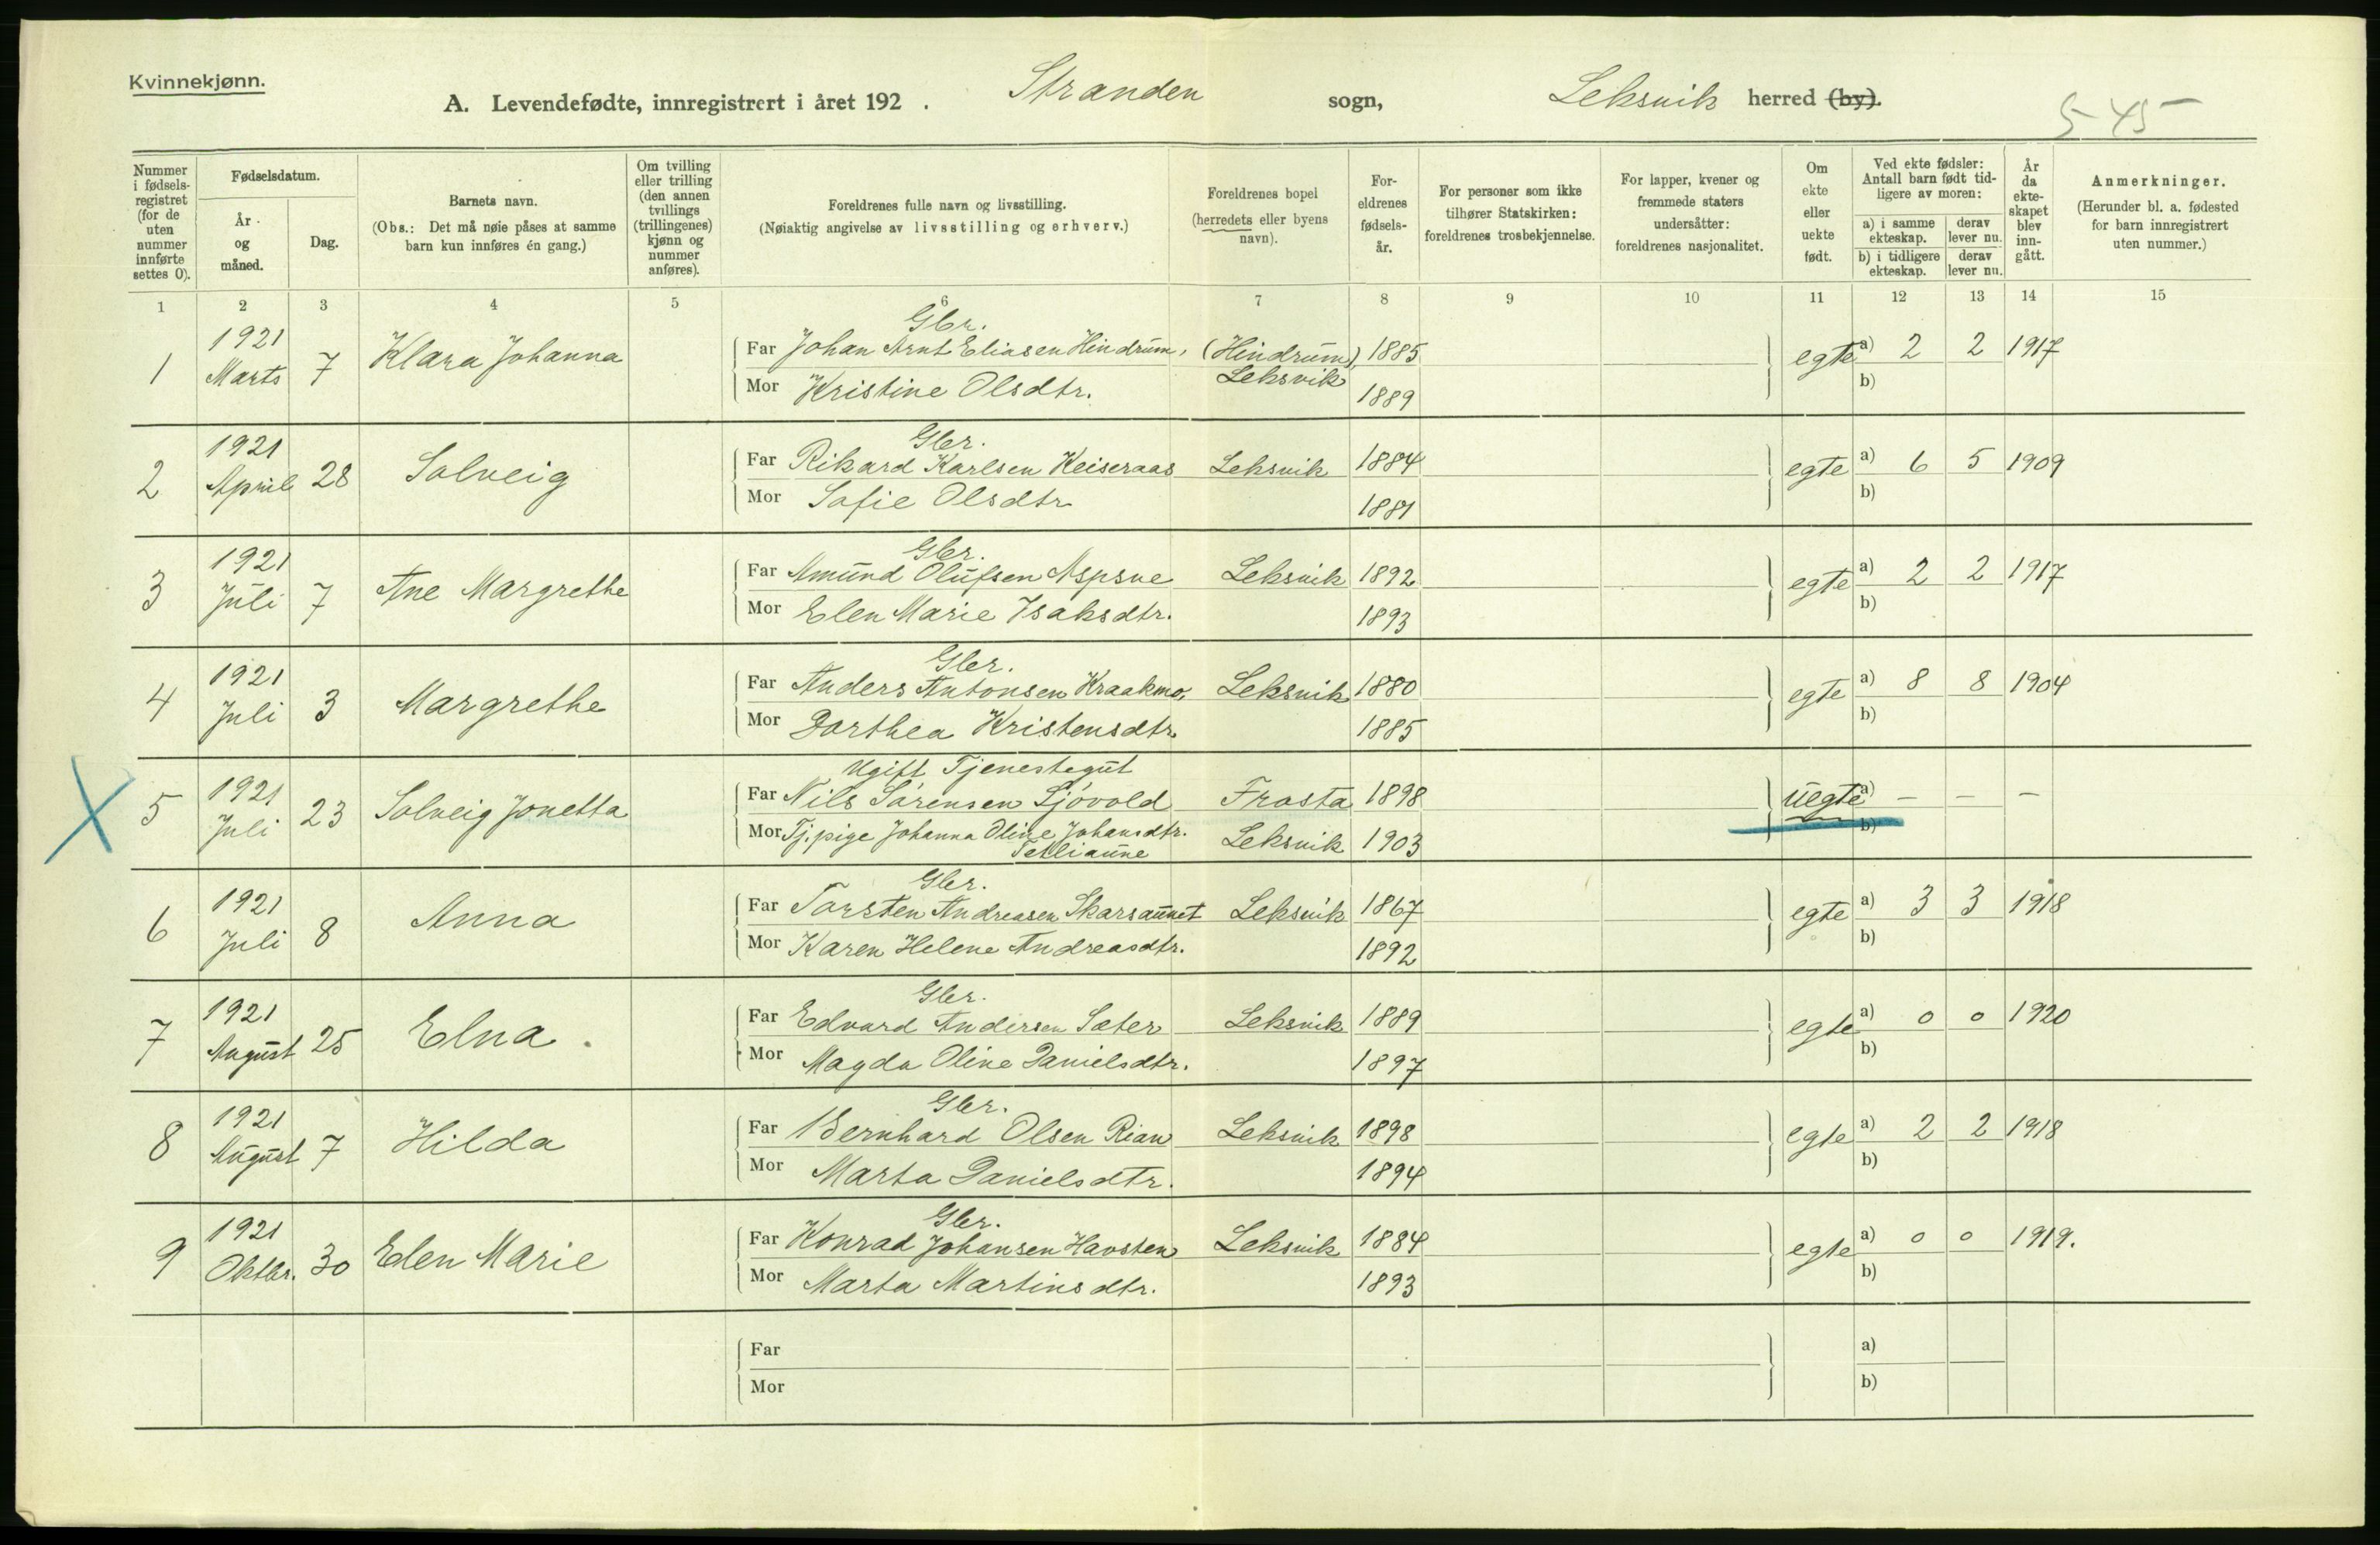 Kvinnekjønn.
A. Levendefødte, innregistrert i året 192 . Stranden sogn, Leksvik herred (by).
5-45
Nummer i fødsels-registret (for de uten nummer innførte settes 0).
Fødselsdatum.
År og måned.
Dag.
Barnets navn.
(Obs.: Det må nøie påses at samme barn kun innføres én gang.)
Om tvilling eller trilling (den annen tvillings (trillingenes) kjønn og nummer anføres).
Foreldrenes fulle navn og livsstilling.
(Nøiaktig angivelse av livsstilling og erhverv.)
Foreldrenes bopel (herredets eller byens navn).
For-eldrenes fødsels-år.
For personer som ikke tilhører Statskirken: foreldrenes trosbekjennelse.
For lapper, kvener og fremmede staters undersåtter: foreldrenes nasjonalitet.
Om ekte eller uekte født.
Ved ekte fødsler: Antall barn født tid-ligere av moren:
a) i samme ekteskap. derav lever nu.
b) i tidligere ekteskap. derav lever nu.
År da ekte-skapet blev inn-gått.
Anmerkninger.
(Herunder bl. a. fødested for barn innregistrert uten nummer.)
1 2 3 4 5 6 7 8 9 10 11 12 13 14 15
Gbr.
1 1921 Marts 7 Klara Johanna Far Johan Arnt Eliasen Hindrum, (Hindrum), Leksvik 1885 egte a) 2 2 1917
Mor Kristine Olsdtr. 1889 b)
Gbr.
2 1921 April 28 Solveig Far Rikard Karlsen Keiseraas Leksvik 1884 egte a) 6 5 1909
Mor Sofie Olsdtr 1881 b)
Gbr.
3 1921 Juli 7 Ane Margrethe Far Amund Olufsen Aspsve Leksvik 1892 egte a) 2 2 1917
Mor Elen Marie Isaksdtr. 1893 b)
Gbr.
4 1921 Juli 3 Margrethe Far Anders Antonsen Kraakmo, Leksvik 1880 egte a) 8 8 1904
Mor Dorthea Kristensdtr. 1885 b)
Ugift Tjenestegut
X 5 1921 Juli 23 Solveig Jonetta Far Nils Sørensen Sjøvold Frosta 1898 uegte a) – – –
Mor Tj.pige Johanna Oline Johansdtr. Leksvik 1903 b)
Gbr.
6 1921 Juli 8 Anna Far Torsten Andreasen Skarsaunet Leksvik 1867 egte a) 3 3 1918
Mor Karen Helene Andreasdtr. 1892 b)
Gbr.
7 1921 August 25 Elna. Far Edvard Andersen Sæter Leksvik 1889 egte a) 0 0 1920
Mor Magda Oline Danielsdtr. 1897 b)
Gbr.
8 1921 August 7 Hilda Far Bernhard Olsen Rian Leksvik 1898 egte a) 2 2 1918
Mor Marta Danielsdtr. 1894 b)
Gbr.
9 1921 Oktbr. 30 Elen Marie Far Konrad Johansen Havsten Leksvik 1884 egte a) 0 0 1919.
Mor Marta Martinsdtr. 1893 b)
Far a)
Mor b)